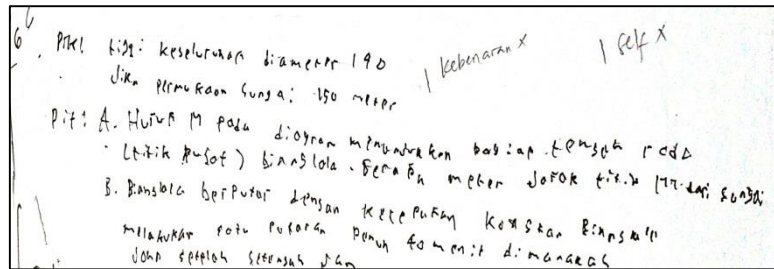 6. Dik! tigg: keseluruhan diameter 190
Jika permukaan sungai: 150 meter
1 kebenaran x
1 self x
Dit: A. Huruf M pada diagram menunjukkan bagian tengah roda
(titik pusat) bianglala. berapa meter jarak titik M dari sungai
B. Bianglala berputar dengan kecepatan konstan
melakukan satu putaran penuh 40 menit dimanakah
John setelah setengah Jam